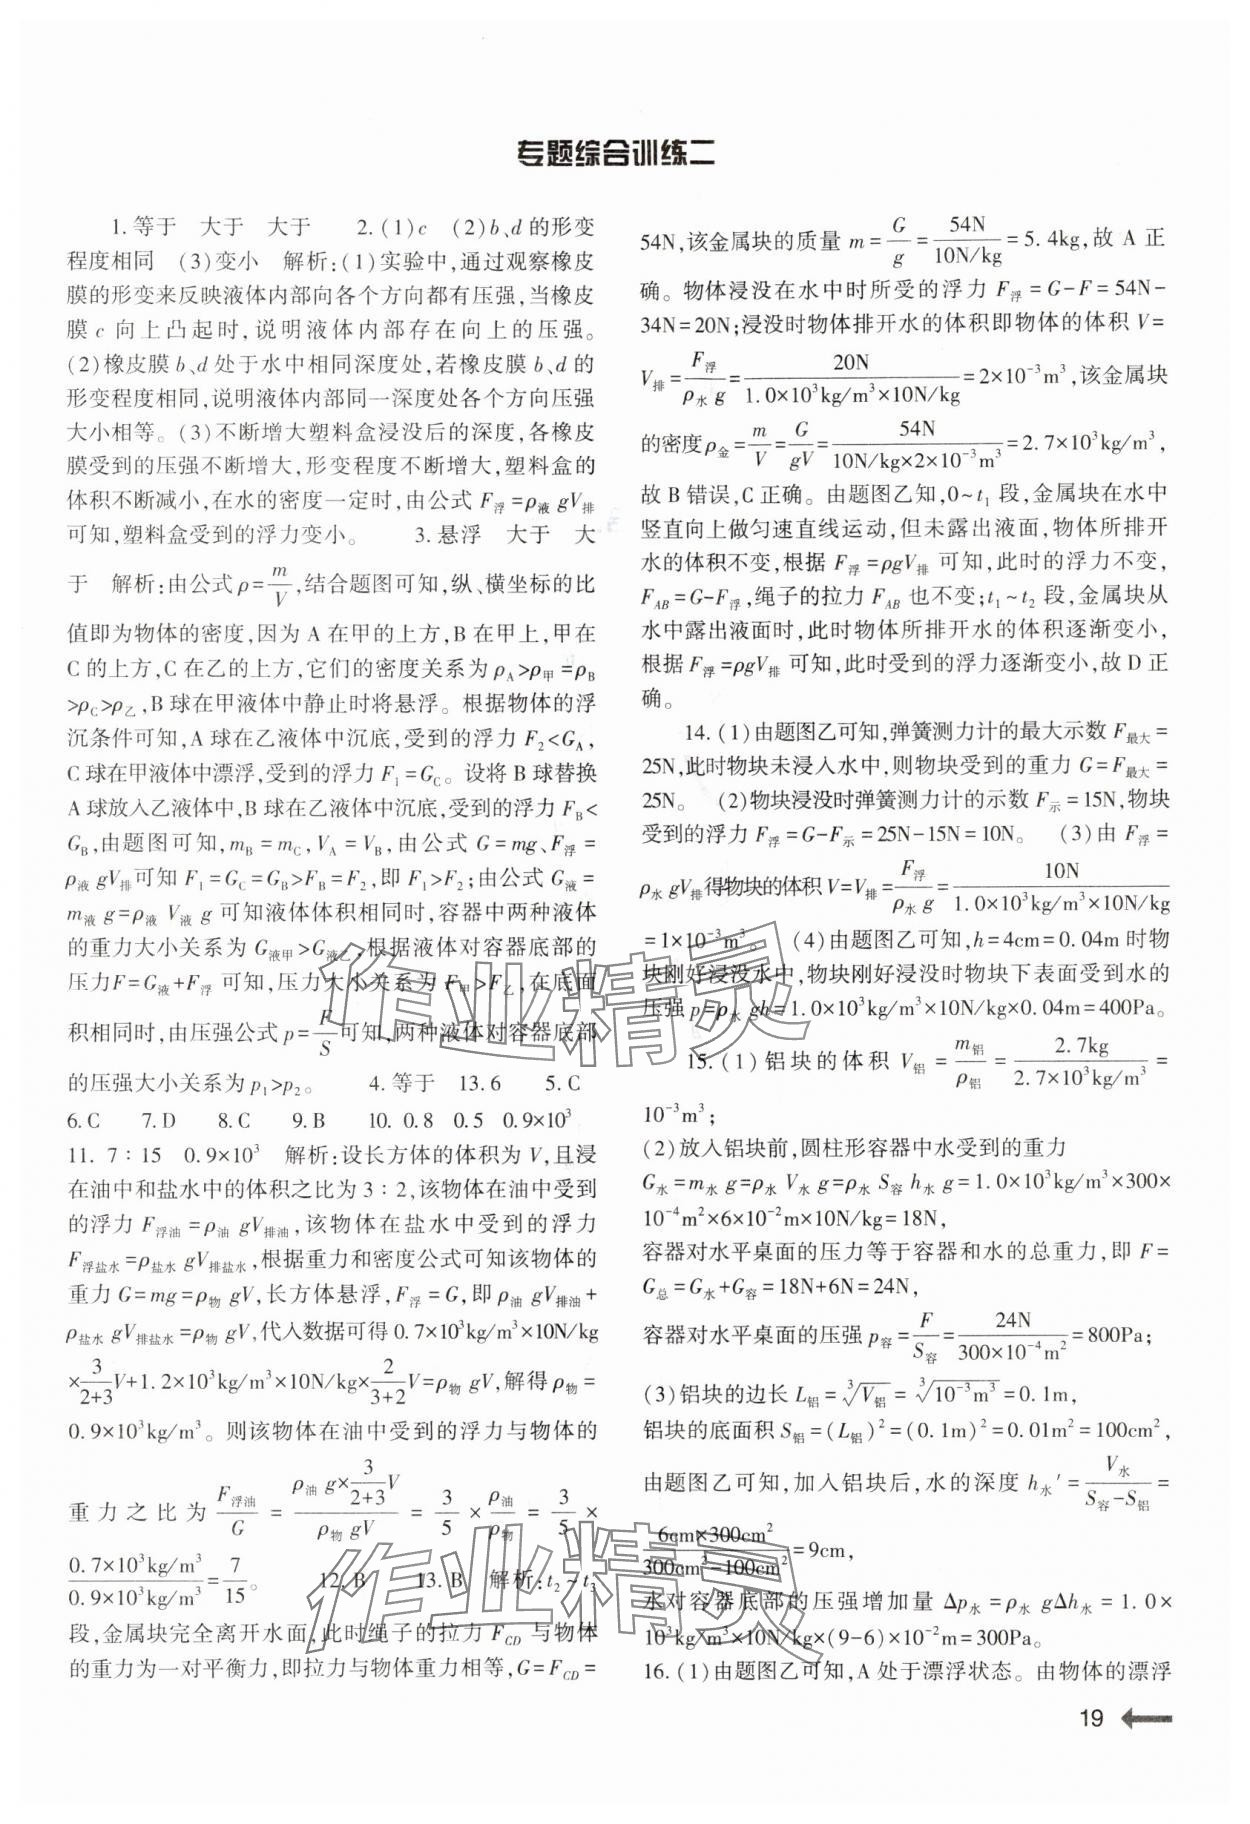 专题综合训练二
1.等于　大于　大于　　2.(1)c　(2)b、d的形变
程度相同　(3)变小　解析:(1)实验中,通过观察橡皮
膜的形变来反映液体内部向各个方向都有压强,当橡皮
膜c向上凸起时,说明液体内部存在向上的压强。
(2)橡皮膜b、d处于水中相同深度处,若橡皮膜b、d的
形变程度相同,说明液体内部同一深度处各个方向压强
大小相等。(3)不断增大塑料盒浸没后的深度,各橡皮
膜受到的压强不断增大,形变程度不断增大,塑料盒的
体积不断减小,在水的密度一定时,由公式F浮=ρ液 gV排
可知,塑料盒受到的浮力变小。　　3.悬浮　大于　大
于　解析:由公式ρ=m/V,结合题图可知,纵、横坐标的比
值即为物体的密度,因为A在甲的上方,B在甲上,甲在
C的上方,C在乙的上方,它们的密度关系为ρA>ρ甲=ρB
>ρC>ρ乙,B球在甲液体中静止时将悬浮。根据物体的浮
沉条件可知,A球在乙液体中沉底,受到的浮力F2<GA,
C球在甲液体中漂浮,受到的浮力F1=GC。设将B球替换
A球放入乙液体中,B球在乙液体中沉底,受到的浮力FB<
GB,由题图可知,mB=mC,VA=VB,由公式G=mg、F浮=
ρ液 gV排可知F1=GC=GB>FB=F2,即F1>F2;由公式G液=
m液 g=ρ液 V液 g可知液体体积相同时,容器中两种液体
的重力大小关系为G液甲>G液乙,根据液体对容器底部的
压力F=G液+F浮可知,压力大小关系为F甲>F乙,在底面
积相同时,由压强公式p=F/S可知,两种液体对容器底部
的压强大小关系为p1>p2。　　4.等于　13.6　　5.C
6.C　　7.D　　8.C　　9.B　　10. 0.8　0.5　0.9×10³
11. 7∶15　0.9×10³　解析:设长方体的体积为V,且浸
在油中和盐水中的体积之比为3∶2,该物体在油中受到
的浮力F浮油=ρ油 gV排油,该物体在盐水中受到的浮力
F浮盐水=ρ盐水 gV排盐水,根据重力和密度公式可知该物体的
重力G=mg=ρ物 gV,长方体悬浮,F浮=G,即ρ油 gV排油+
ρ盐水 gV排盐水=ρ物 gV,代入数据可得0.7×10³kg/m³×10N/kg
×3/(2+3)V+1.2×10³kg/m³×10N/kg×2/(3+2)V=ρ物 gV,解得ρ物=
0.9×10³kg/m³。则该物体在油中受到的浮力与物体的
重力之比为F浮油/G=(ρ油 g×3/(2+3)V)/(ρ物 gV)=3/5×ρ油/ρ物=3/5×
(0.7×10³kg/m³)/(0.9×10³kg/m³)=7/15。　　12.B　　13.B　解析:t2~t3
段,金属块完全离开水面,此时绳子的拉力FCD与物体
的重力为一对平衡力,即拉力与物体重力相等,G=FCD=
54N,该金属块的质量m=G/g=54N/(10N/kg)=5.4kg,故A正
确。物体浸没在水中时所受的浮力F浮=G-F=54N-
34N=20N;浸没时物体排开水的体积即物体的体积V=
V排=F浮/(ρ水 g)=20N/(1.0×10³kg/m³×10N/kg)=2×10⁻³m³,该金属块
的密度ρ金=m/V=G/(gV)=54N/(10N/kg×2×10⁻³m³)=2.7×10³kg/m³,
故B错误,C正确。由题图乙知,0~t1段,金属块在水中
竖直向上做匀速直线运动,但未露出液面,物体所排开
水的体积不变,根据F浮=ρgV排可知,此时的浮力不变,
FAB=G-F浮,绳子的拉力FAB也不变;t1~t2段,金属块从
水中露出液面时,此时物体所排开水的体积逐渐变小,
根据F浮=ρgV排可知,此时受到的浮力逐渐变小,故D正
确。
14.(1)由题图乙可知,弹簧测力计的最大示数F最大=
25N,此时物块未浸入水中,则物块受到的重力G=F最大=
25N。　(2)物块浸没时弹簧测力计的示数F示=15N,物块
受到的浮力F浮=G-F示=25N-15N=10N。　(3)由F浮=
ρ水 gV排得物块的体积V=V排=F浮/(ρ水 g)=10N/(1.0×10³kg/m³×10N/kg)
=1×10⁻³m³。　(4)由题图乙可知,h=4cm=0.04m时物
块刚好浸没水中,物块刚好浸没时物块下表面受到水的
压强p=ρ水 gh=1.0×10³kg/m³×10N/kg×0.04m=400Pa。
15.(1)铝块的体积V铝=m铝/ρ铝=2.7kg/(2.7×10³kg/m³)=
10⁻³m³;
(2)放入铝块前,圆柱形容器中水受到的重力
G水=m水 g=ρ水 V水 g=ρ水 S容 h水 g=1.0×10³kg/m³×300×
10⁻⁴m²×6×10⁻²m×10N/kg=18N,
容器对水平桌面的压力等于容器和水的总重力,即F=
G总=G水+G容=18N+6N=24N,
容器对水平桌面的压强p容=F/S容=24N/(300×10⁻⁴m²)=800Pa;
(3)铝块的边长L铝=³√V铝=³√(10⁻³m³)=0.1m,
铝块的底面积S铝=(L铝)²=(0.1m)²=0.01m²=100cm²,
由题图乙可知,加入铝块后,水的深度h水′=V水/(S容-S铝)=
(6cm×300cm²)/(300cm²-100cm²)=9cm,
水对容器底部的压强增加量Δp水=ρ水 gΔh水=1.0×
10³kg/m³×10N/kg×(9-6)×10⁻²m=300Pa。
16.(1)由题图乙可知,A处于漂浮状态。由物体的漂浮
19
作业精灵
作业精灵